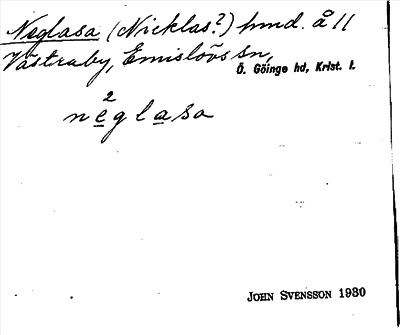 Neglasa (Nicklas?) hmd. å 11
Västraby, Emislövs sn,
Ö. Göinge hd, Krist. l.
2
neglasa
JOHN SVENSSON 1930